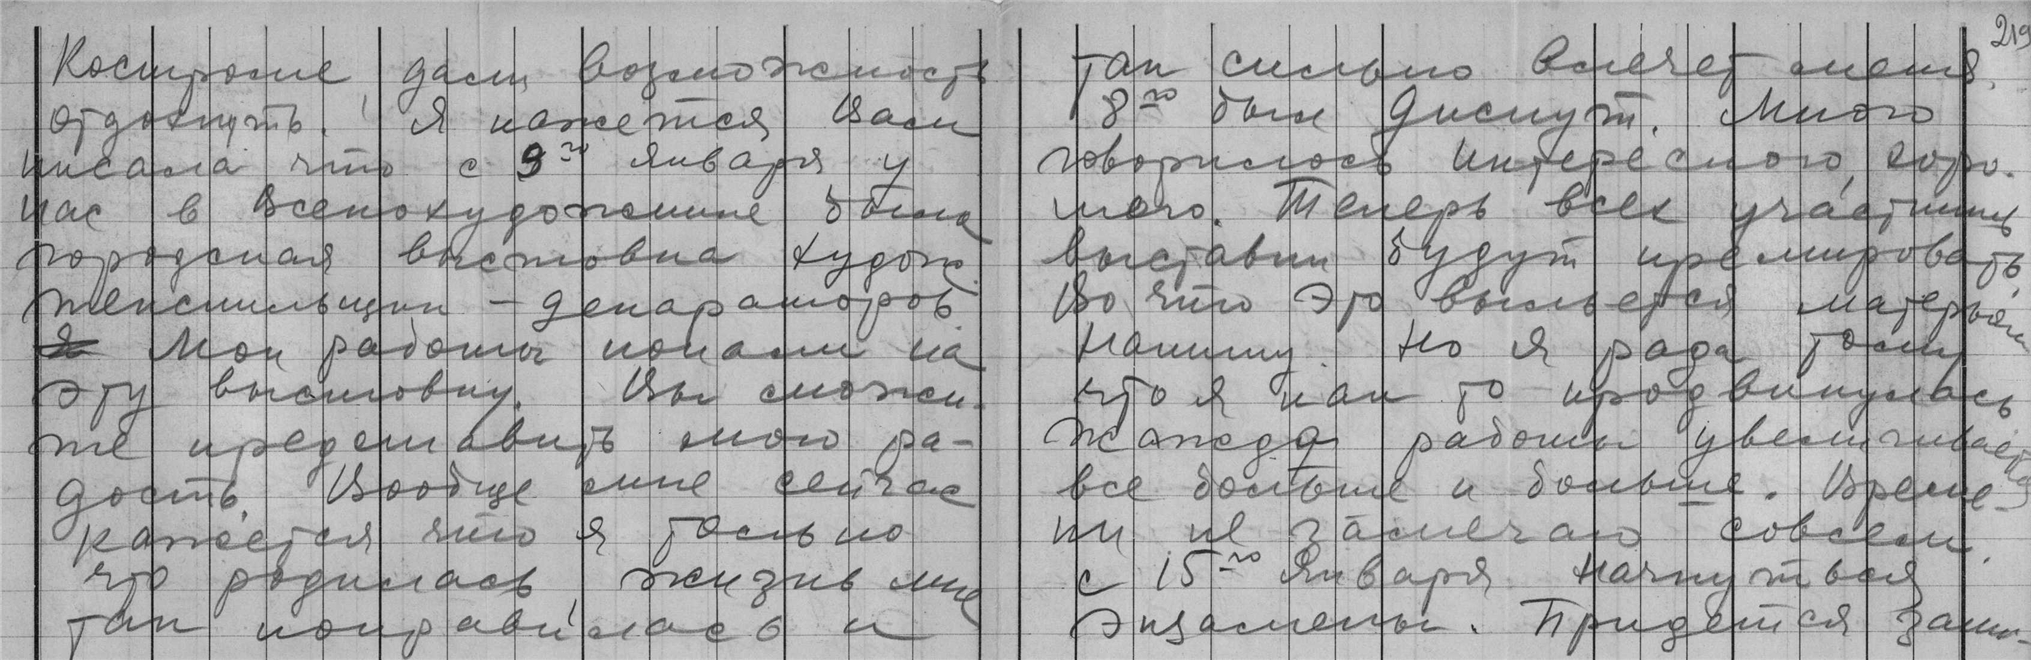 Костроме дали возможность
отдохнуть. Я кажется Вам
писала что с 9го января у
нас в Всекохудожнике была
городская выставка худож.
текстильщик – декараторов.
Мои работы попали на
эту выставку. Вы сможи-
те представить мою ра-
дость. Вообще мне сейчас
кажется что я только
что родилась, жизнь мне
так понравилась и
219
так сильно влечет меня.
8го был Диспут. Много
говорилось интересного, хоро-
шего. Теперь всех участниц
выставки будут премировать
Во что это выльется матерьял
Напишу. Но я рада тому
что я как то продвинулась
Жажда работы увеличивается
все больше и больше. Време-
ни не замечаю совсем.
с 15го Января начнуться
экзамены. Придется зани-